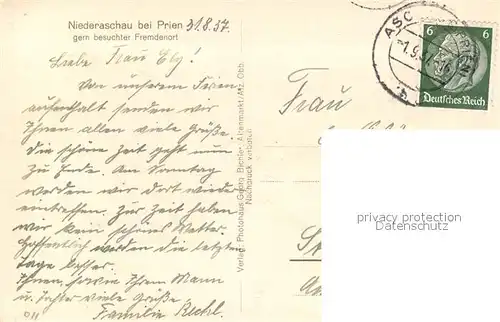 Niederaschau bei Prien 31.8.37.
gern besuchter Fremdenort
Liebe Frau Ely!
Von unserem Ferien-
aufenthalt senden wir
Ihnen allen viele Grüße.
Die schöne Zeit geht nun
zu Ende. Am Sonntag
werden wir dort wieder
eintreffen. Zur Zeit haben
wir kein schönes Wetter.
Hoffentlich werden die letzten
Tage besser.
Ihnen, sowie Ihrem Mann
u. Tochter viele Grüße
Familie
Verlag: Photohaus Georg Bichler, Ahrenmarkt/Atz. Obb.
Nachdruck verboten!
ASC
-1.9.37.
6 6
Deutsches Reich
Frau
privacy protection
Datenschutz